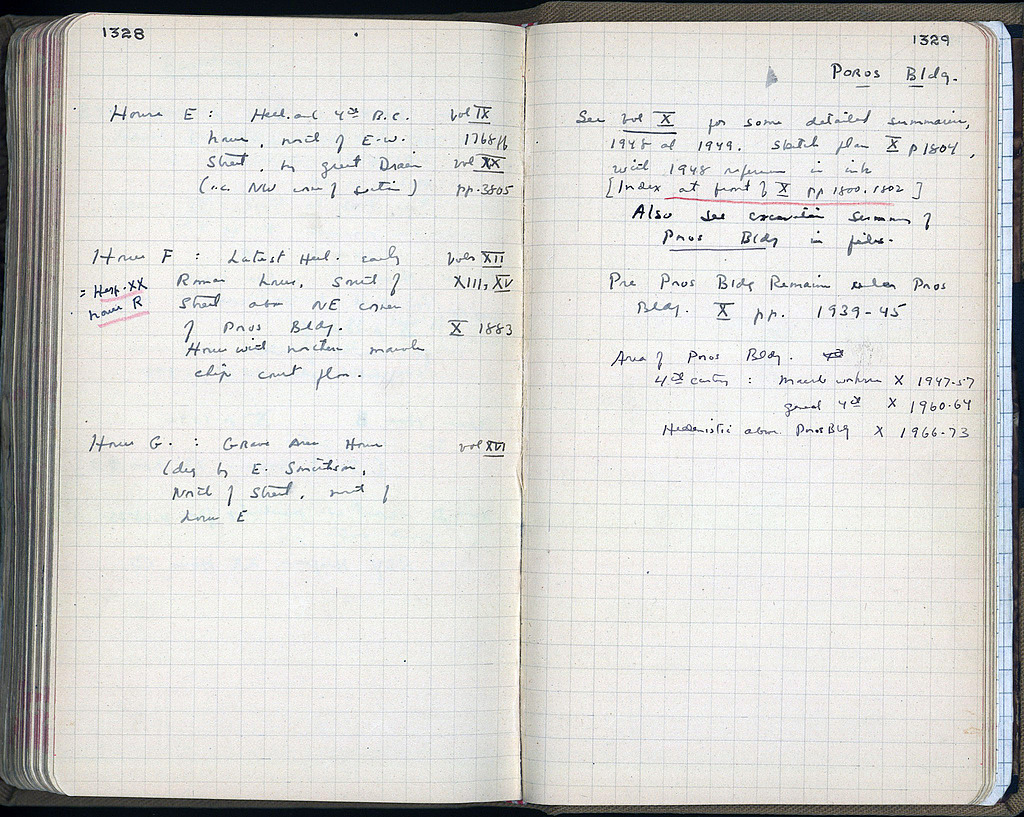 1328
House E : Hell. and 4th B.C. vol IX
house, north of E-W. 1768 ff
Street, by great Drain vol XX
(i.e. NW corner of section) pp. 3805
House F : Latest Hell. early vols XII
= Hesp. XX
house R
Roman house, South of XIII, XV
Street above NE corner
of Poros Bldg. X 1883
House with northern marble
chip court floor.
House G. : Grave Area House vol XVI
(dug by E. Smithson,
North of Street, north of
house E
1329
Poros Bldg.
See vol X for some detailed summaries,
1948 and 1949. Sketch plan X p 1804,
with 1948 references in ink
[Index at front of X pp 1800-1802]
Also see excavation summary of
Poros Bldg in files.
Pre Poros Bldg Remains under Poros
Bldg. X pp. 1939-45
Area of Poros Bldg.
4th century : marble workers X 1947-57
general 4th X 1960-64
Hellenistic above Poros Bldg X 1966-73